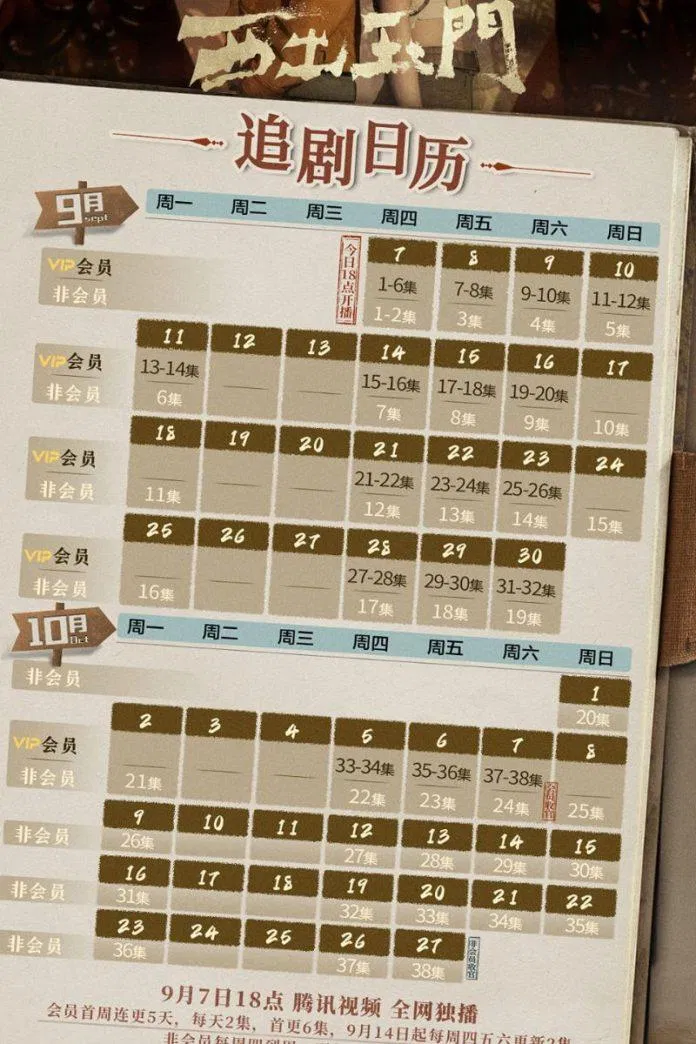 西出玉門
追剧日历
9月
sept
周一 周二 周三 周四 周五 周六 周日
今日18点开播
7 8 9 10
VIP会员 1-6集 7-8集 9-10集 11-12集
非会员 1-2集 3集 4集 5集
11 12 13 14 15 16 17
VIP会员 13-14集 15-16集 17-18集 19-20集
非会员 6集 7集 8集 9集 10集
18 19 20 21 22 23 24
VIP会员 21-22集 23-24集 25-26集
非会员 11集 12集 13集 14集 15集
25 26 27 28 29 30
VIP会员 27-28集 29-30集 31-32集
非会员 16集 17集 18集 19集
10月
Oct
周一 周二 周三 周四 周五 周六 周日
1
非会员 20集
2 3 4 5 6 7 8
VIP会员 33-34集 35-36集 37-38集
会员收官
非会员 21集 22集 23集 24集 25集
9 10 11 12 13 14 15
非会员 26集 27集 28集 29集 30集
16 17 18 19 20 21 22
非会员 31集 32集 33集 34集 35集
23 24 25 26 27
非会员 36集 37集 38集
非会员收官
9月7日18点 腾讯视频 全网独播
会员首周连更5天，每天2集，首更6集，9月14日起每周四五六更新2集
非会员每周四到周